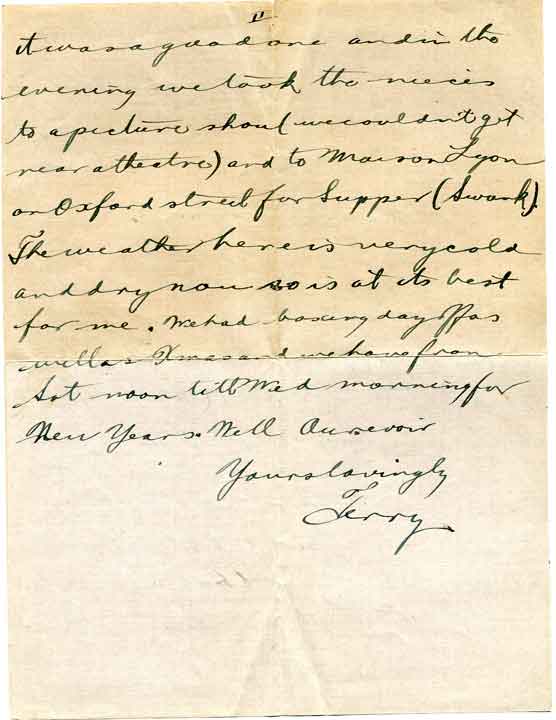 11
it was a good one and in the
evening we took the nieces
to a picture show (we couldn't get
near a theatre) and to Maison Lyon
on Oxford street for Supper (Swank).
The weather here is very cold
and dry now so is at its best
for me. We had boxing day off as
well as Xmas and we have from
Sat noon till Wed morning for
New Years. Well Aurevoir
Yours lovingly
Terry.